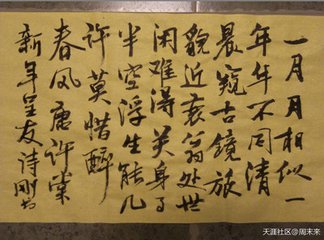 一月月相似一
年年不同清
晨窥古镜旅
貌近衰翁处世
闲难得关身事
半空浮生能几
许莫惜醉
春风唐许棠
新年呈友诗刚书
天涯社区@周末来